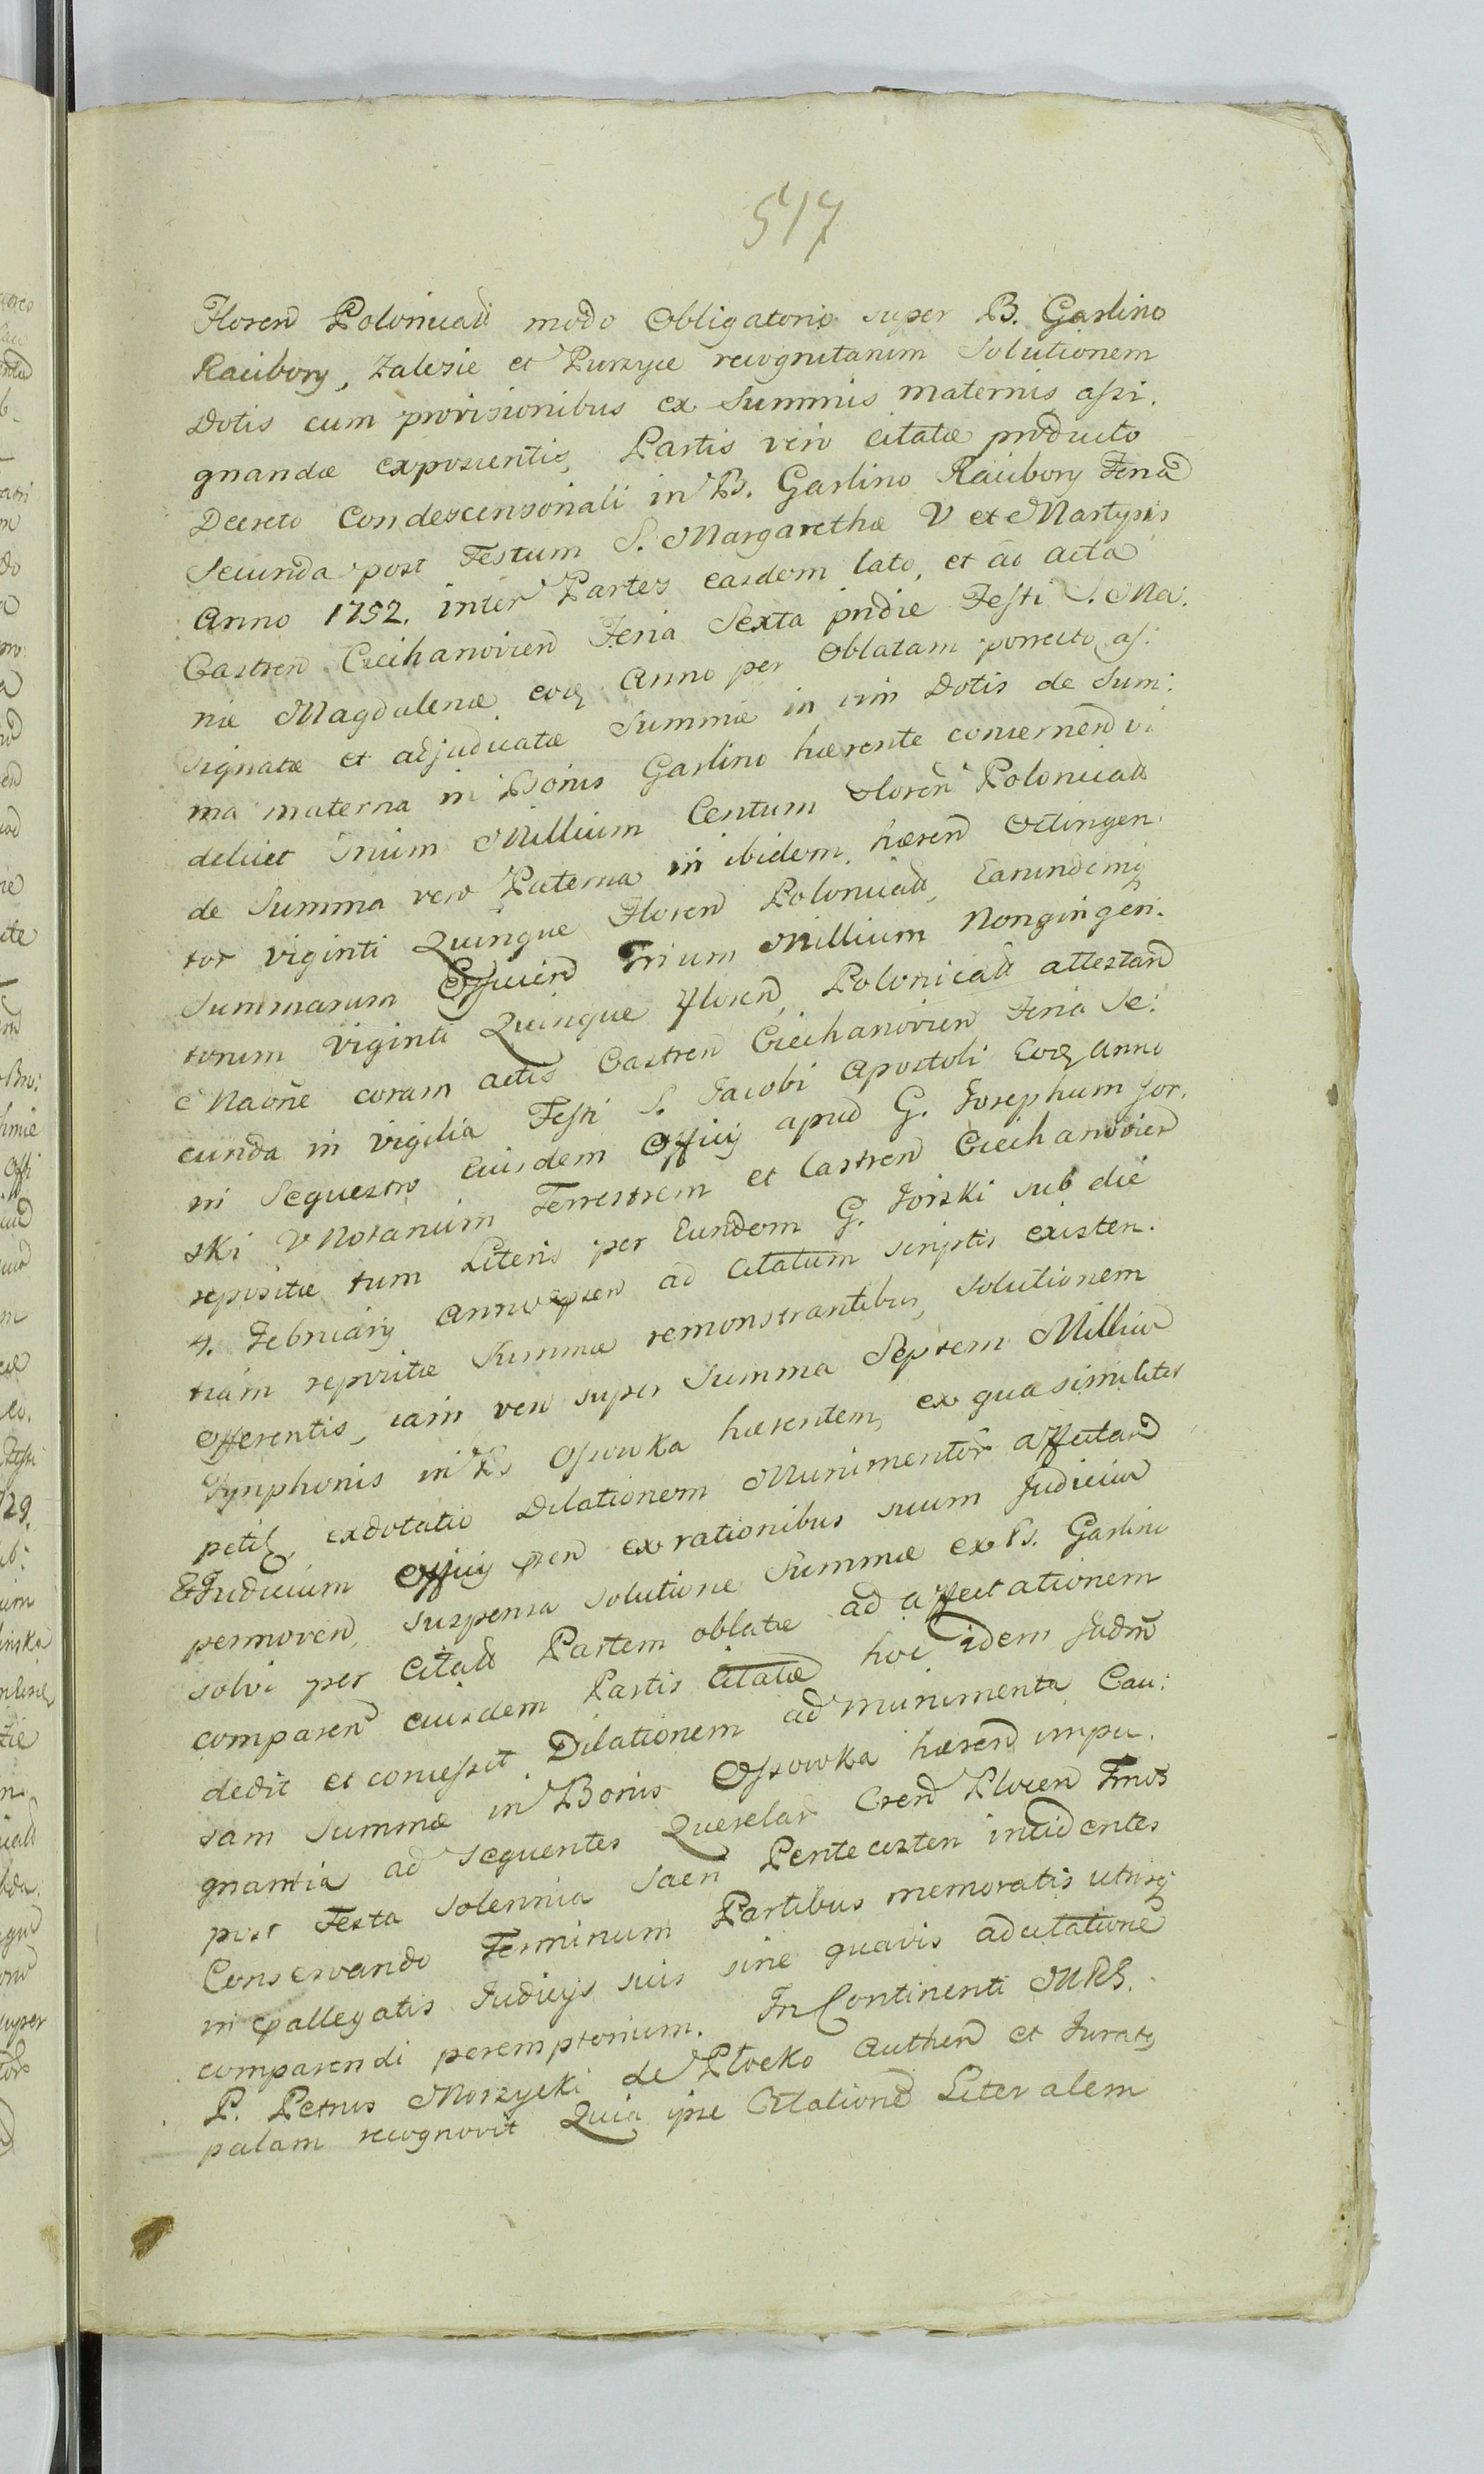 517
Floren Polonicall modo Obligatorio super B. Garlino
Racibory, Zalesie et Purzyce recognitarum solutionem
Dotis cum provisionibus ex Summis maternis assi.
gnandæ exposcentis, Partis vero citatæ producto
Decreto Condescensoriali in B. Garlino Racibory Feria
Secunda post Festum S. Margarethæ V et Martyris
Anno 1752. inter Partes easdem lato, et ad acta
Castren Ciechanovien Feria Sexta pridie Festi S. Ma:
riæ Magdalenæ eoq Anno per Oblatam porrecto, as:
signatæ et adjudicatæ Summæ in vim Dotis de Sum:
ma materna in Bonis Garlino hærente concernen vi
delicet Trium Millium Centum Floren Polonicall
de Summa vero Paterna in ibidem hæren Octingen:
tor viginti Quinque Floren Polonicall, Earundemq
Summarum Efficien Trium Millium Nongingen:
torum viginti Quinque Floren, Polonicall attestan
Maone coram actis Castren Ciechanovien Feria Se:
cunda in vigilia Festi S. Jacobi Apostoli Eoq Anno
in Sequestro Eiusdem Officij apud G. Josephum Jor.
ski V Notarium Terrestrem et Castren Ciechanovien
repositæ tum Literis per Eundem G. Jorski sub die
4. Februarij Anno præsen ad Citatum scriptis existen.
tiam repositæ Summæ remonstrantibus, solutionem
offerentis, iam vero super Summa Septem Millium
Tynphonis in B. Ossowka hærentem, ex qua similiter
petit exdotatio Dilationem Munimentor affectan
Et Judicium Officij præsen ex rationibus suum Judicium
permoven, suspensa solutione Summæ ex B. Garlino
solvi per Citall Partem oblatæ ad affectationem
comparen eiusdem Partis Citatæ hoc idem Judm
dedit et concessit Dilationem ad munimenta Cau:
sam Summæ in Bonis Ossowka hæren impu.
gnantia ad sequentes Querelas Cren Plocen Fmos
post Festa Solennia Sacri Pentecosten incidentes
Conservando Terminum Partibus memoratis utrisq
in præallegatis Judicijs suis sine quavis adcitatione
comparendi peremptorium. In Continenti MRS.
P. Petrus Morzycki de Plocko Authen et Jurats
palam recognovit Quia ipse Citatione Literalem